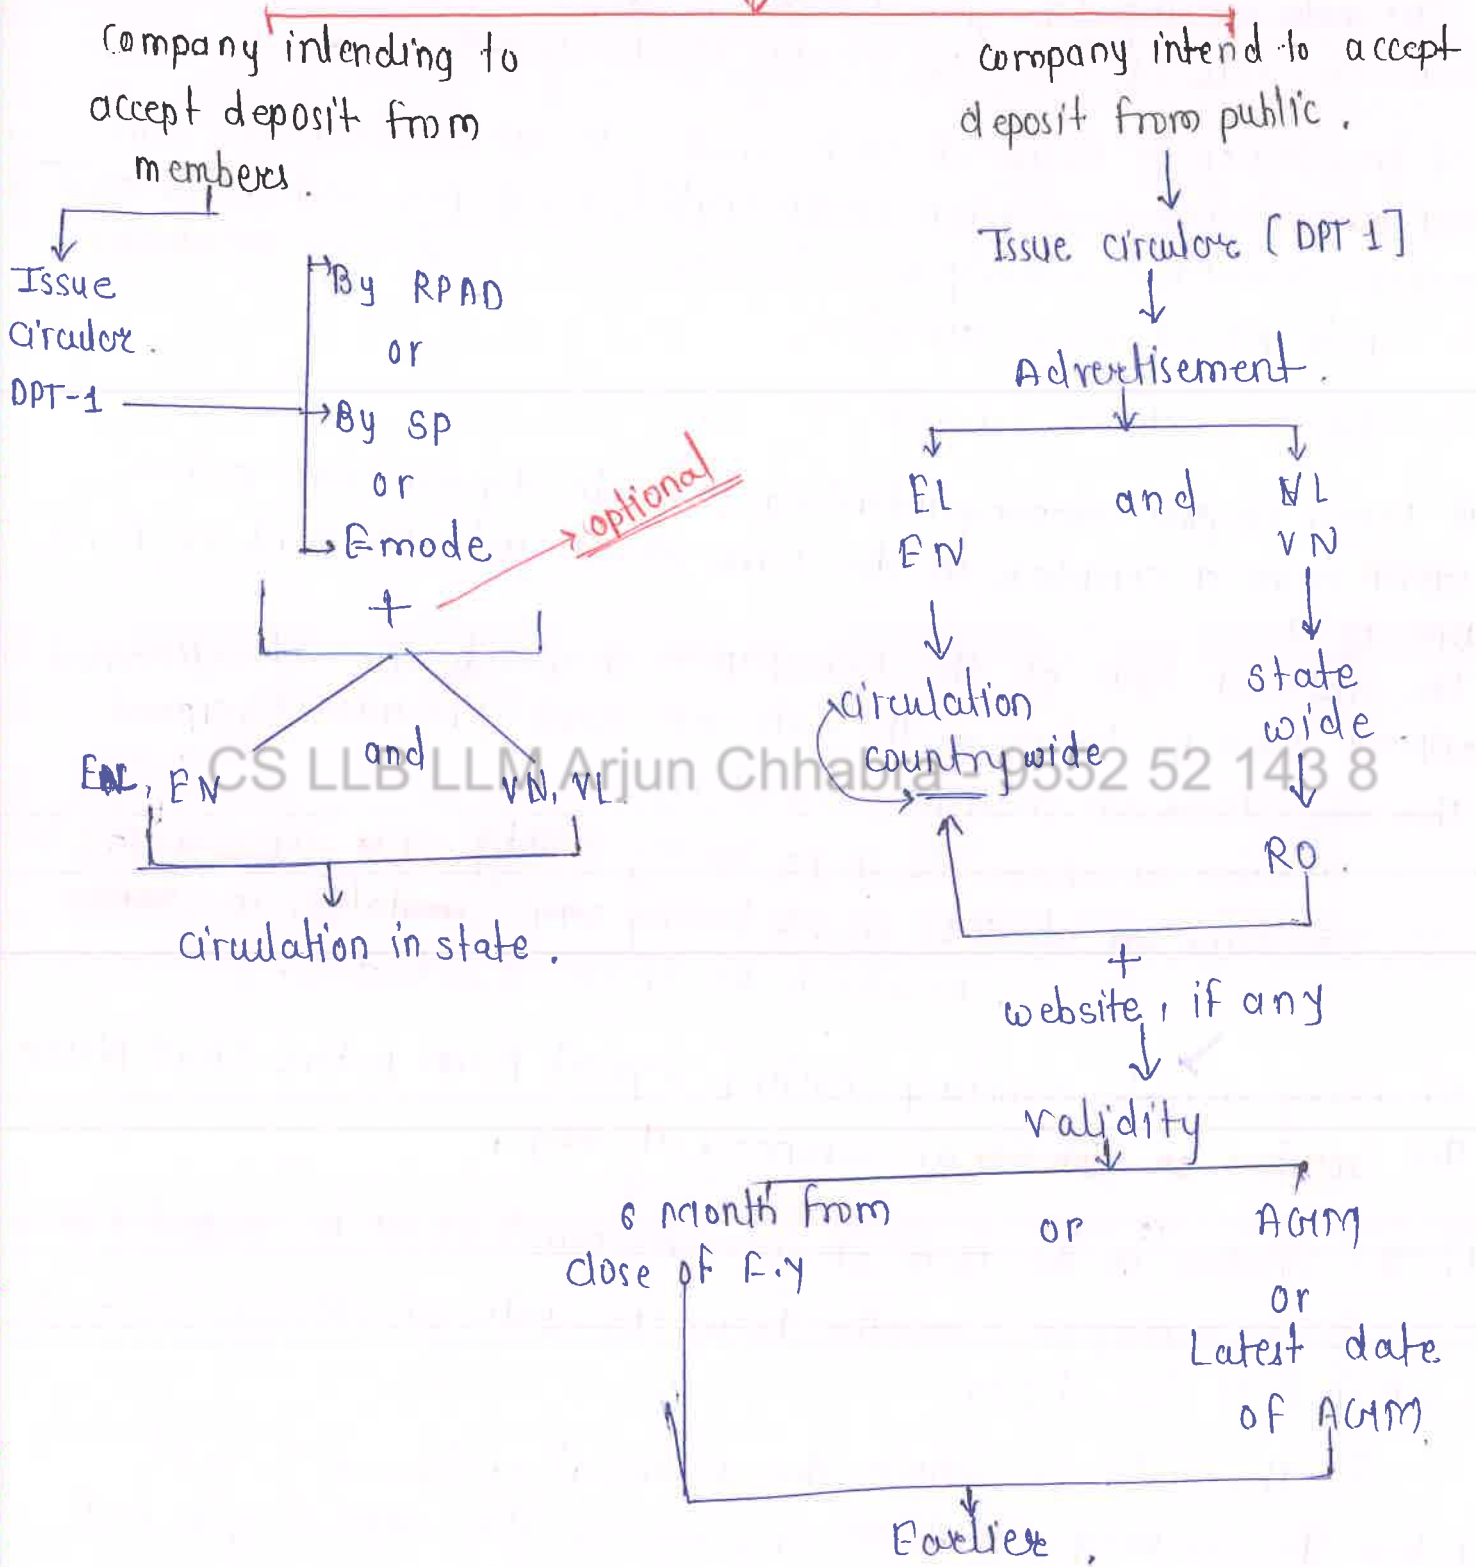 Company intending to
accept deposit from
members.
Issue
Circular.
DPT-1
By RPAD
or
By SP
or
E-mode
+
optional
EL, EN
and
VN, VL.
circulation in state.
company intend to accept
deposit from public.
Issue circular [DPT 1]
Advertisement.
EL
EN
and
VL
VN
circulation
countrywide
state
wide.
RO.
+
website, if any
validity
6 month from
close of F.y
or
AGM
or
Latest date
of AGM.
Earlier.
CS LLB LLM Arjun Chhabra - 9552 52 143 8